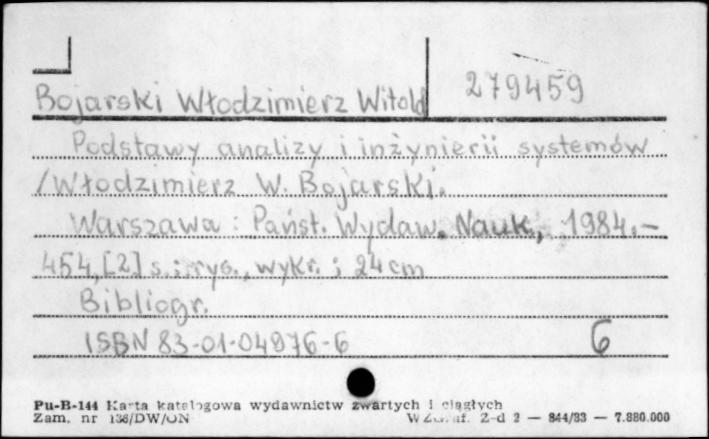 279459
Bojarski Włodzimierz Witold
Podstawy analizy i inżynierii systemów
/Włodzimierz W. Bojarski.
Warszawa : Państ. Wydaw. Nauk., 1984.–
454, [2] s. : rys., wykr. ; 24 cm
Bibliogr.
ISBN 83-01-04976-6 6
Pu-B-144 Karta katalogowa wydawnictw zwartych i ciągłych
Zam. nr 138/DW/ON Z-d 2 — 844/83 — 7.880.000